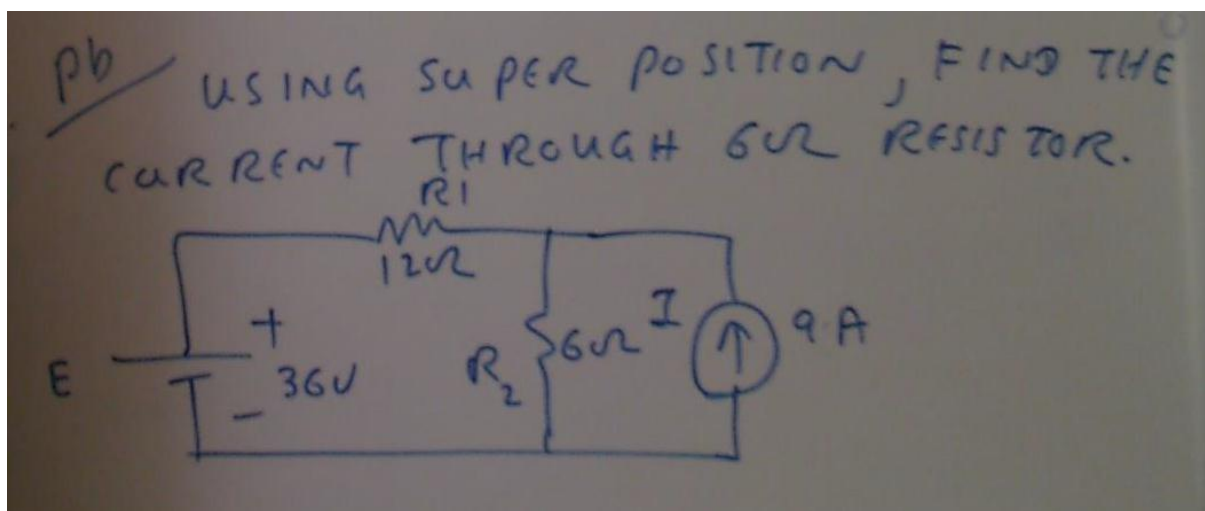 pb
USING SUPER POSITION, FIND THE
CURRENT THROUGH 6Ω RESISTOR.
R1
12Ω
E
+
36V
-
R2
6Ω
I
9A